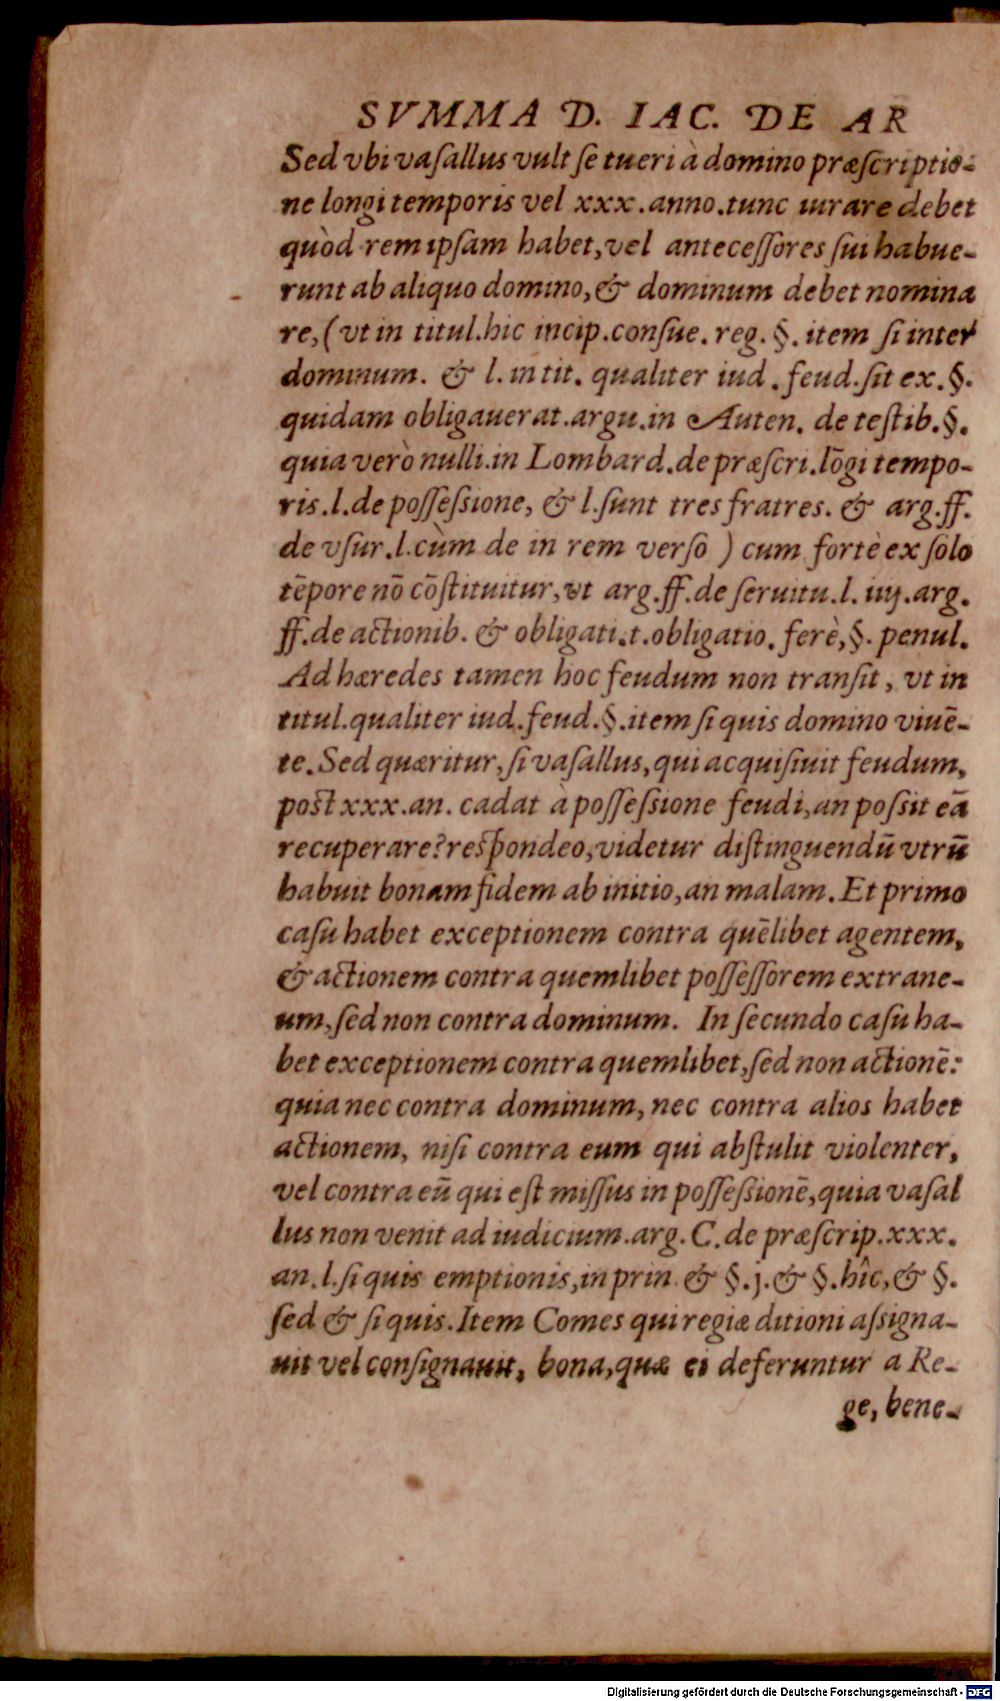 SVMMA D. IAC. DE AR
Sed vbi vaſallus vult ſe tueri à domino præſcriptio-
ne longi temporis vel xxx. anno. tunc iurare debet
quòd rem ipſam habet, vel anteceſſores ſui habue-
runt ab aliquo domino, & dominum debet nomina
re, (vt in titul. hic incip. conſue. reg. §. item ſi inter
dominum. & l. in tit. qualiter iud. feud. ſit ex. §.
quidam obligauerat. argu. in Auten. de teſtib. §.
quia verò nulli. in Lombard. de præſcri. lõgi tempo-
ris. l. de poſſeſsione, & l. ſunt tres fratres. & arg. ff.
de vſur. l. cùm de in rem verſo ) cum fortè ex ſolo
tẽpore nõ cõſtituitur, vt arg. ff. de ſeruitu. l. iiij. arg.
ff. de actionib. & obligati. t. obligatio. ferè, §. penul.
Ad hæredes tamen hoc feudum non tranſit, vt in
titul. qualiter iud. feud. §. item ſi quis domino viuẽ-
te. Sed quæritur, ſi vaſallus, qui acquiſiuit feudum,
poſt xxx. an. cadat à poſſeſsione feudi, an poſsit eã
recuperare? reſpondeo, videtur diſtinguendũ vtrũ
habuit bonam fidem ab initio, an malam. Et primo
caſu habet exceptionem contra quẽlibet agentem,
& actionem contra quemlibet poſſeſſorem extrane-
um, ſed non contra dominum. In ſecundo caſu ha-
bet exceptionem contra quemlibet, ſed non actionẽ:
quia nec contra dominum, nec contra alios habet
actionem, niſi contra eum qui abſtulit violenter,
vel contra eũ qui eſt miſſus in poſſeſsionẽ, quia vaſal
lus non venit ad iudicium. arg. C. de præſcrip. xxx.
an. l. ſi quis emptionis, in prin. & §. j. & §. hîc, & §.
ſed & ſi quis. Item Comes qui regiæ ditioni aſsigna-
uit vel conſignauit, bona, quæ ei deferuntur a Re-
ge, bene-
Digitalisierung gefördert durch die Deutsche Forschungsgemeinschaft - DFG